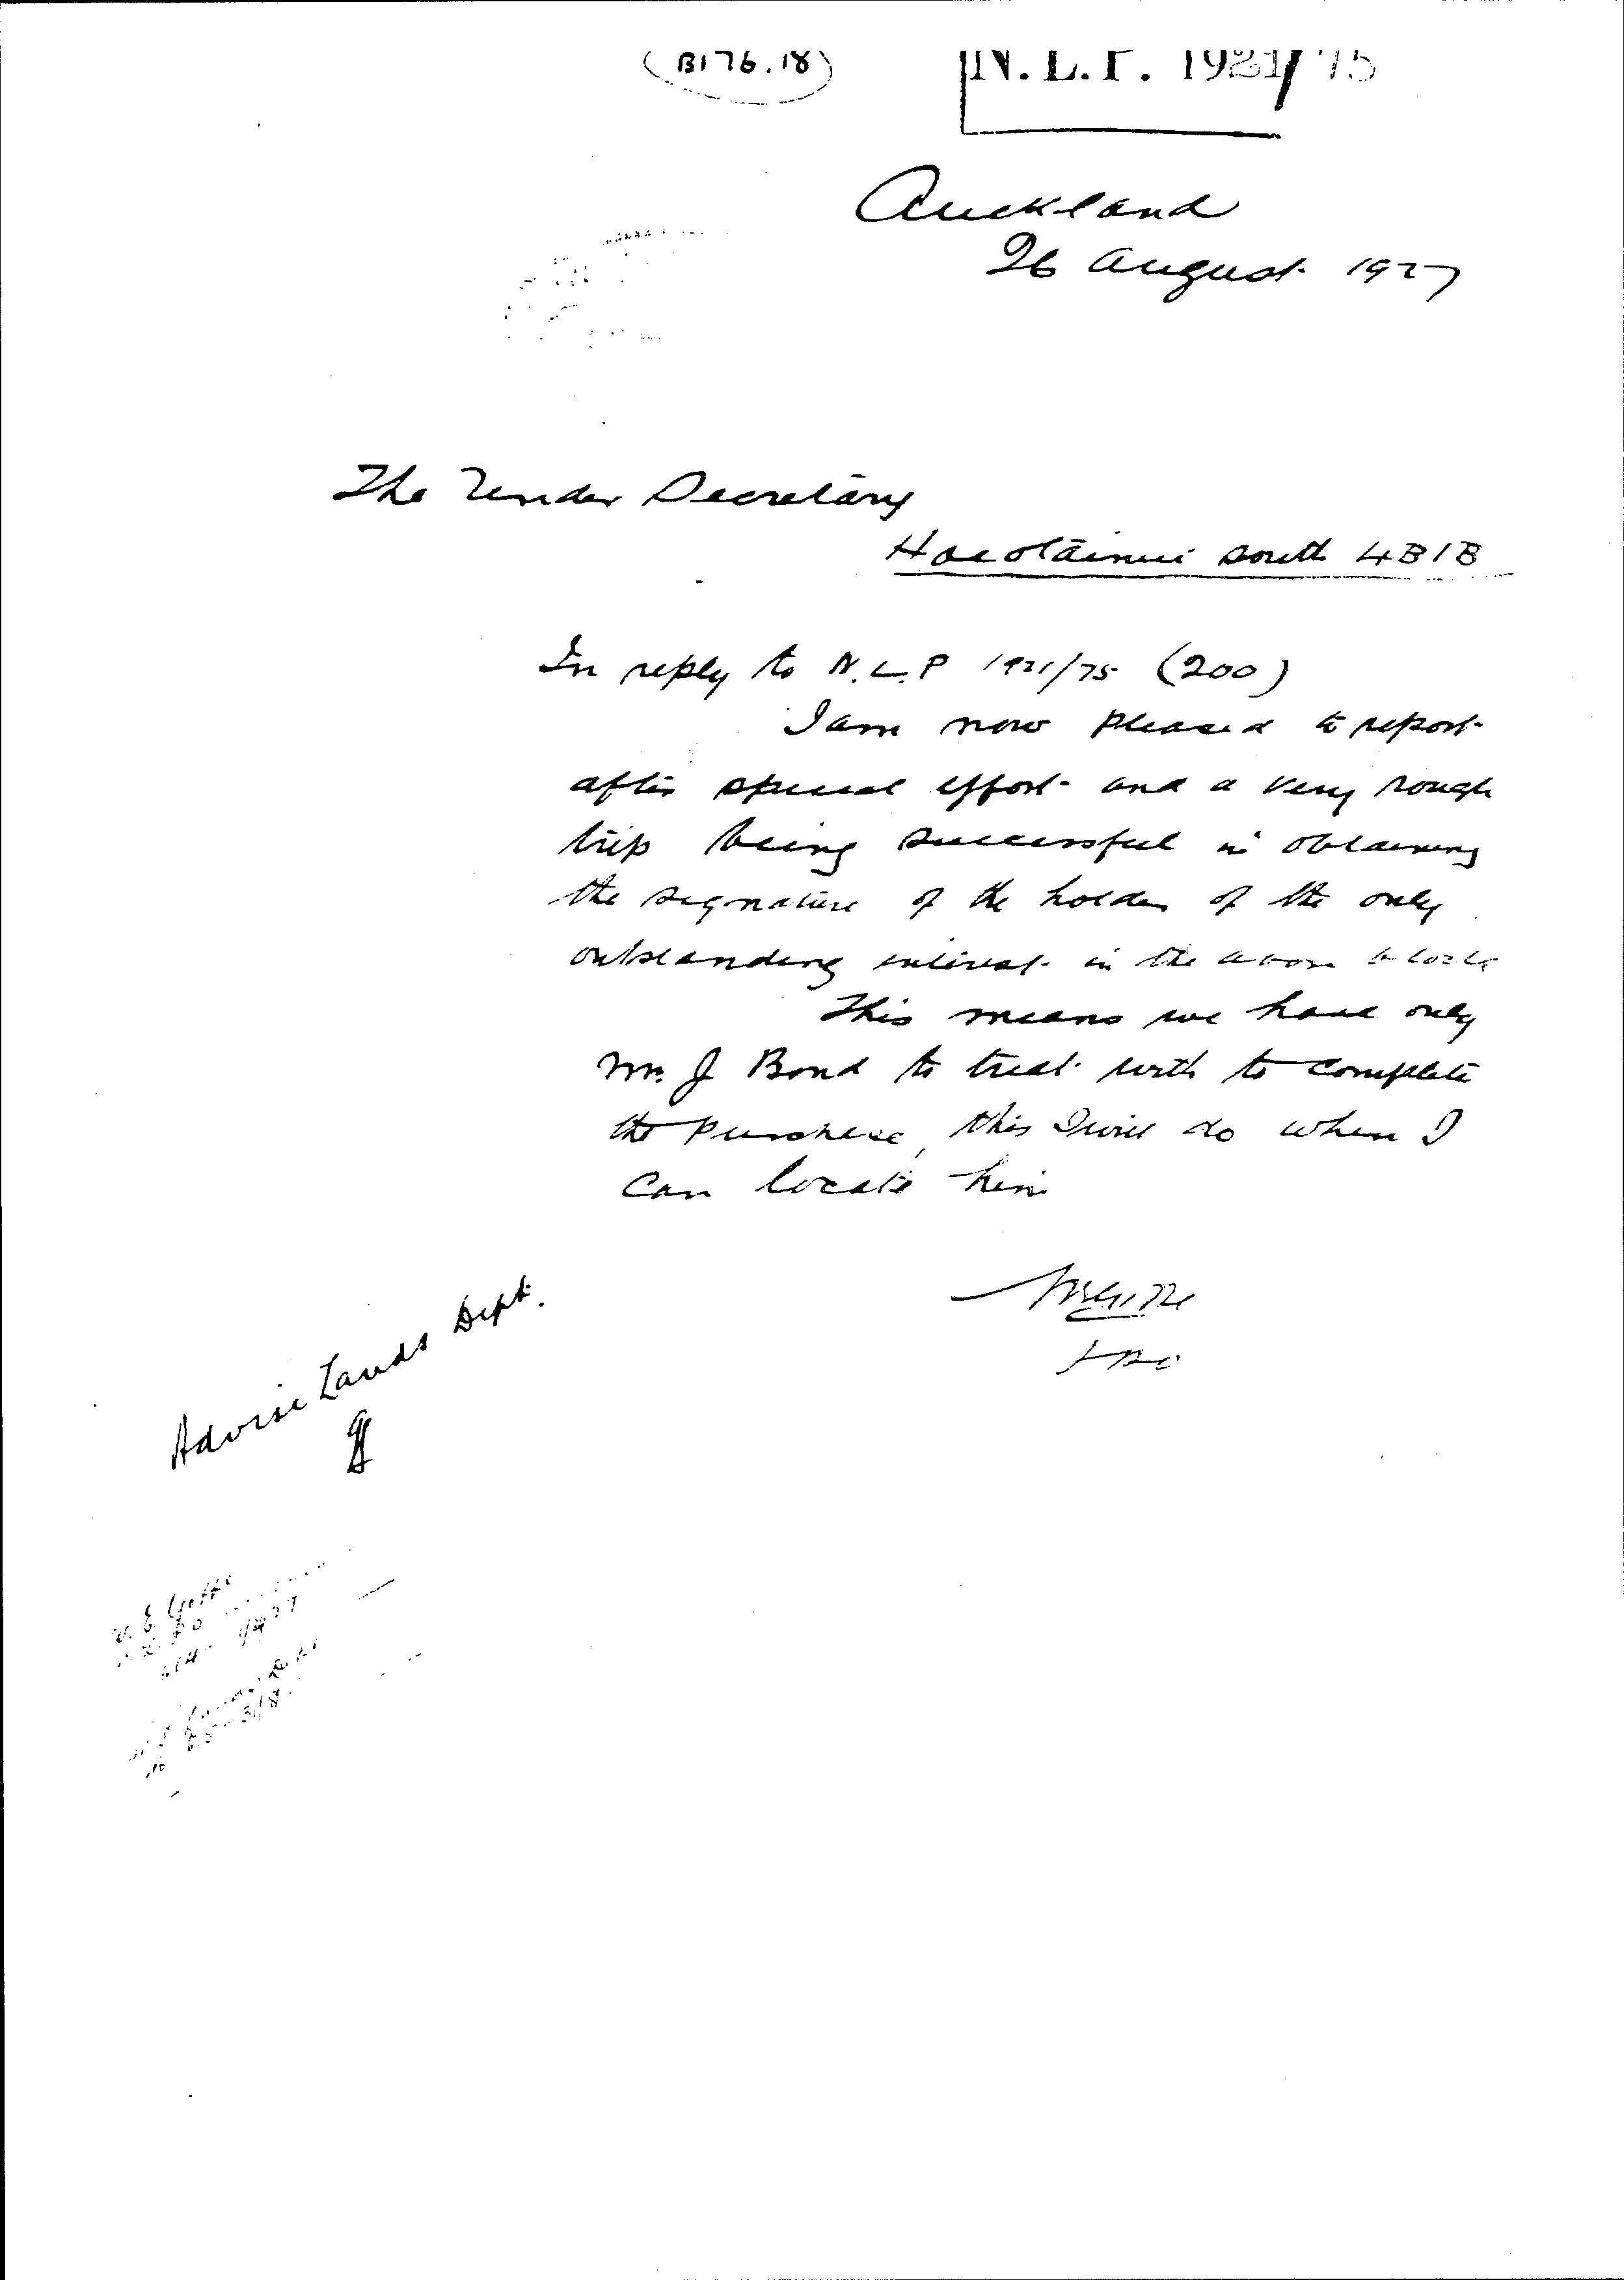 (B176.18)
N.L.P. 1921/75
Auckland
26 August 1927
The Under Secretary
South 4B1B
In reply to N.L.P 1921/75 (200)
I am now pleased to report
after special effort and a very rough
trip being successful in obtaining
the signature of the holder of the only
outstanding interest in the above block
This means we have only
Mr. J Bond to treat with to complete
the purchase, this I will do when I
can locate him
Advise Lands Dept.